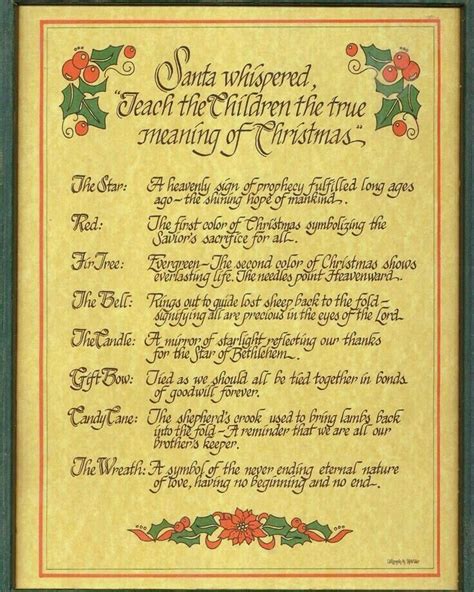 Santa whispered,
"Teach the Children the true
meaning of Christmas"
The Star: A heavenly sign of prophecy fulfilled long ages
ago – the shining hope of mankind.
Red: The first color of Christmas symbolizing the
Savior's sacrifice for all.
Fir Tree: Evergreen – The second color of Christmas shows
everlasting life. The needles point Heavenward.
The Bell: Rings out to guide lost sheep back to the fold –
signifying all are precious in the eyes of the Lord
The Candle: A mirror of starlight reflecting our thanks
for the Star of Bethlehem.
Gift Bow: Tied as we should all be tied together in bonds
of goodwill forever.
Candy Cane: The shepherd's crook used to bring lambs back
into the fold – A reminder that we are all our
brother's keeper.
The Wreath: A symbol of the never ending eternal nature
of love, having no beginning and no end.
Calligraphy by